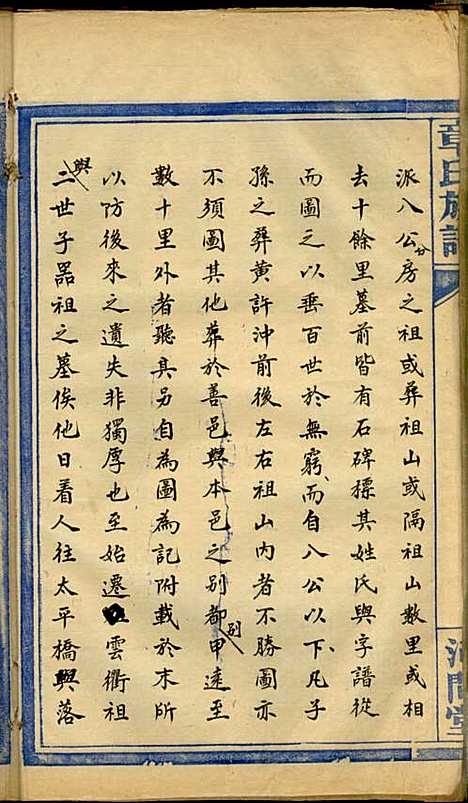 章氏族譜
河間堂
派八公廿房之祖或葬祖山或隔祖山数里或相
去十餘里墓前皆有石碑標其姓氏與字譜從
而圖之以垂百世於無窮而自八公以下凡子
孫之葬黄許沖前後左右祖山內者不勝圖亦
不須圖其他葬於善邑與本邑之別都别甲遠至
數十里外者聽其另自為圖為記附載於末所
以防後來之遺失非獨厚也至始遷雲衢祖
與二世子器祖之墓俟他日着人往太平橋與落